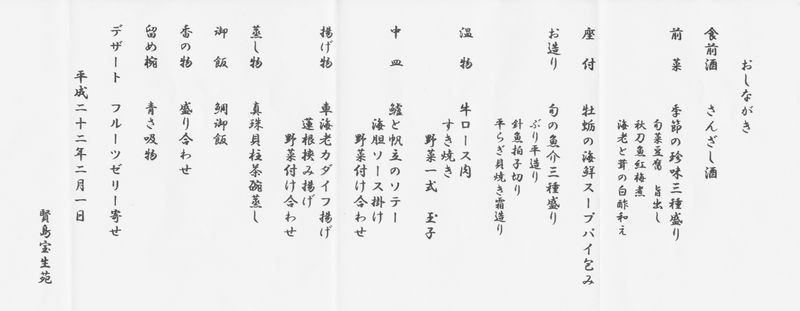 おしながき
食前酒　さんざし酒
前菜　季節の珍味三種盛り
旬菜豆腐　旨出し
秋刀魚紅梅煮
海老と茸の白酢和え
座付　牡蛎の海鮮スープパイ包み
お造り　旬の魚介三種盛り
ぶり平造り
針魚拍子切り
平らぎ貝焼き霜造り
温物　牛ロース肉
すき焼き
野菜一式　玉子
中皿　鱸と帆立のソテー
海胆ソース掛け
野菜付け合わせ
揚げ物　車海老カダイフ揚げ
蓮根挟み揚げ
野菜付け合わせ
蒸し物　真珠貝柱茶碗蒸し
御飯　鯛御飯
香の物　盛り合わせ
留め椀　青さ吸物
デザート　フルーツゼリー寄せ
平成二十二年二月一日
賢島宝生苑